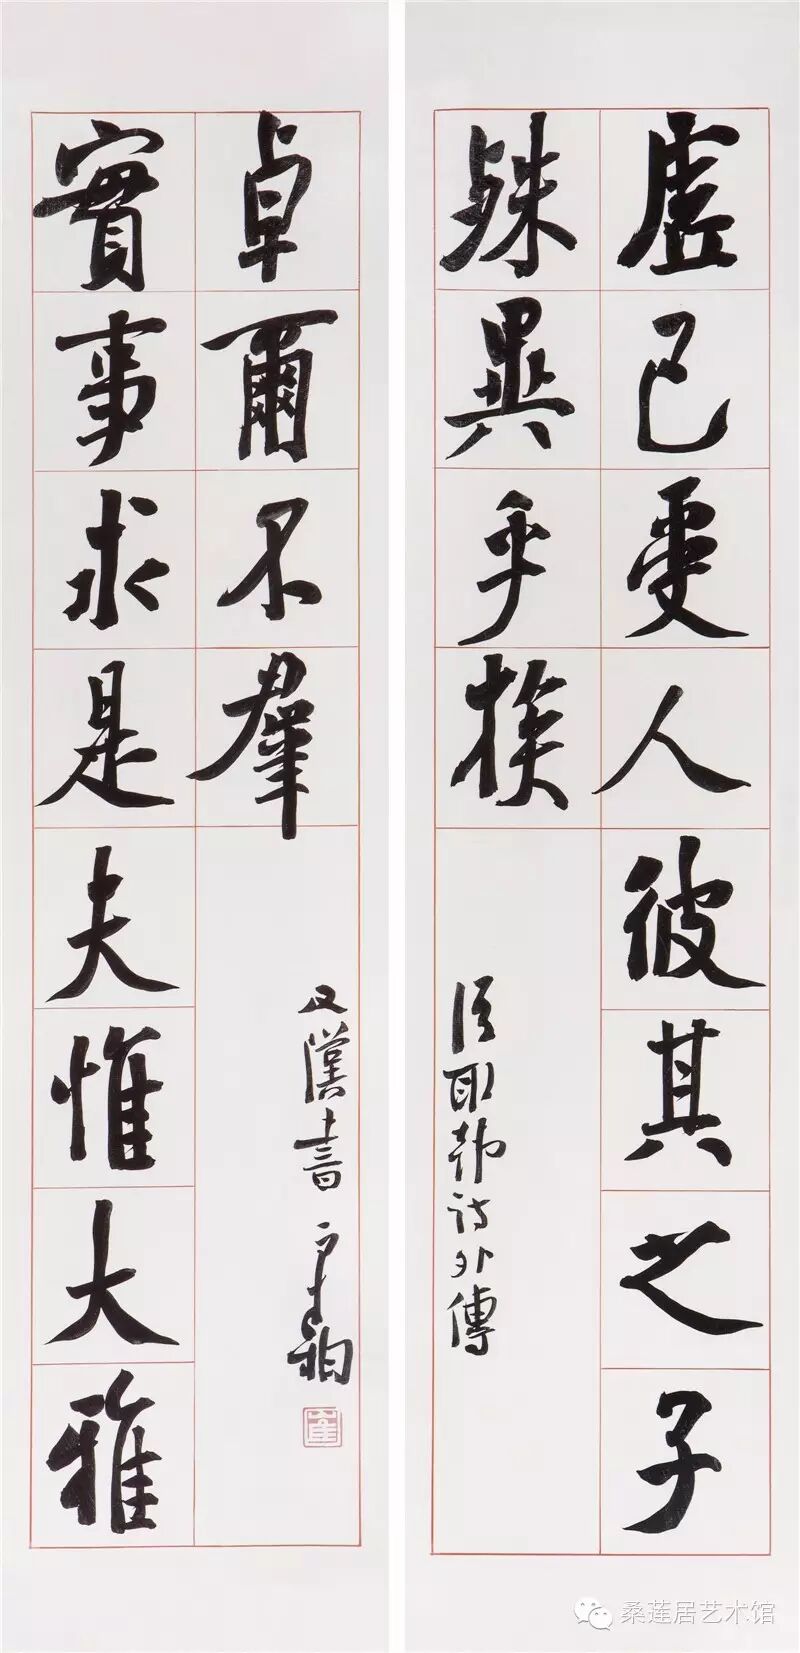 虛己受人彼其之子
殊異乎族
取韓詩外傳
實事求是夫惟大雅
卓爾不羣
及漢書
桑莲居艺术馆